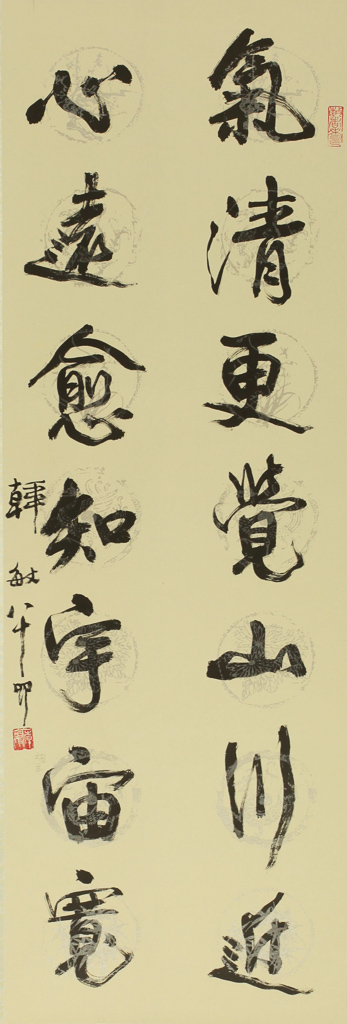 氣清更覺山川近
心遠愈知宇宙寬
韓敏八十一叩